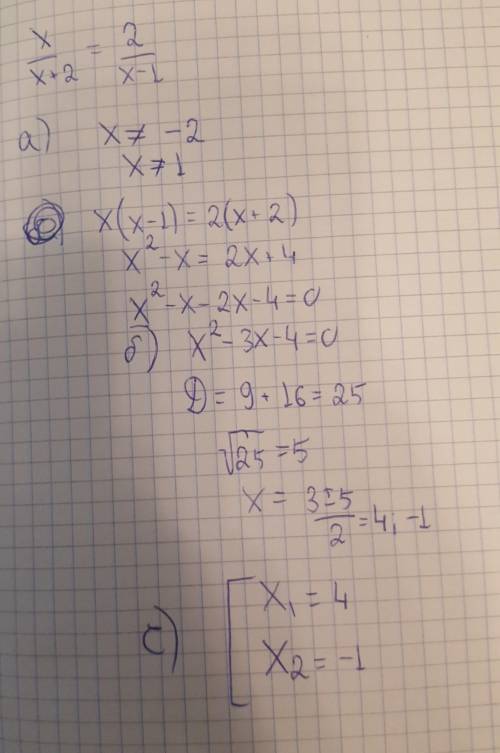 x/(x+2) = 2/(x-1)
a) x ≠ -2
x ≠ 1
x(x-1) = 2(x+2)
x² - x = 2x+4
x² - x - 2x - 4 = 0
б) x² - 3x - 4 = 0
D = 9 + 16 = 25
√25 = 5
x = (3±5)/2 = 4; -1
c) [ x₁ = 4
x₂ = -1